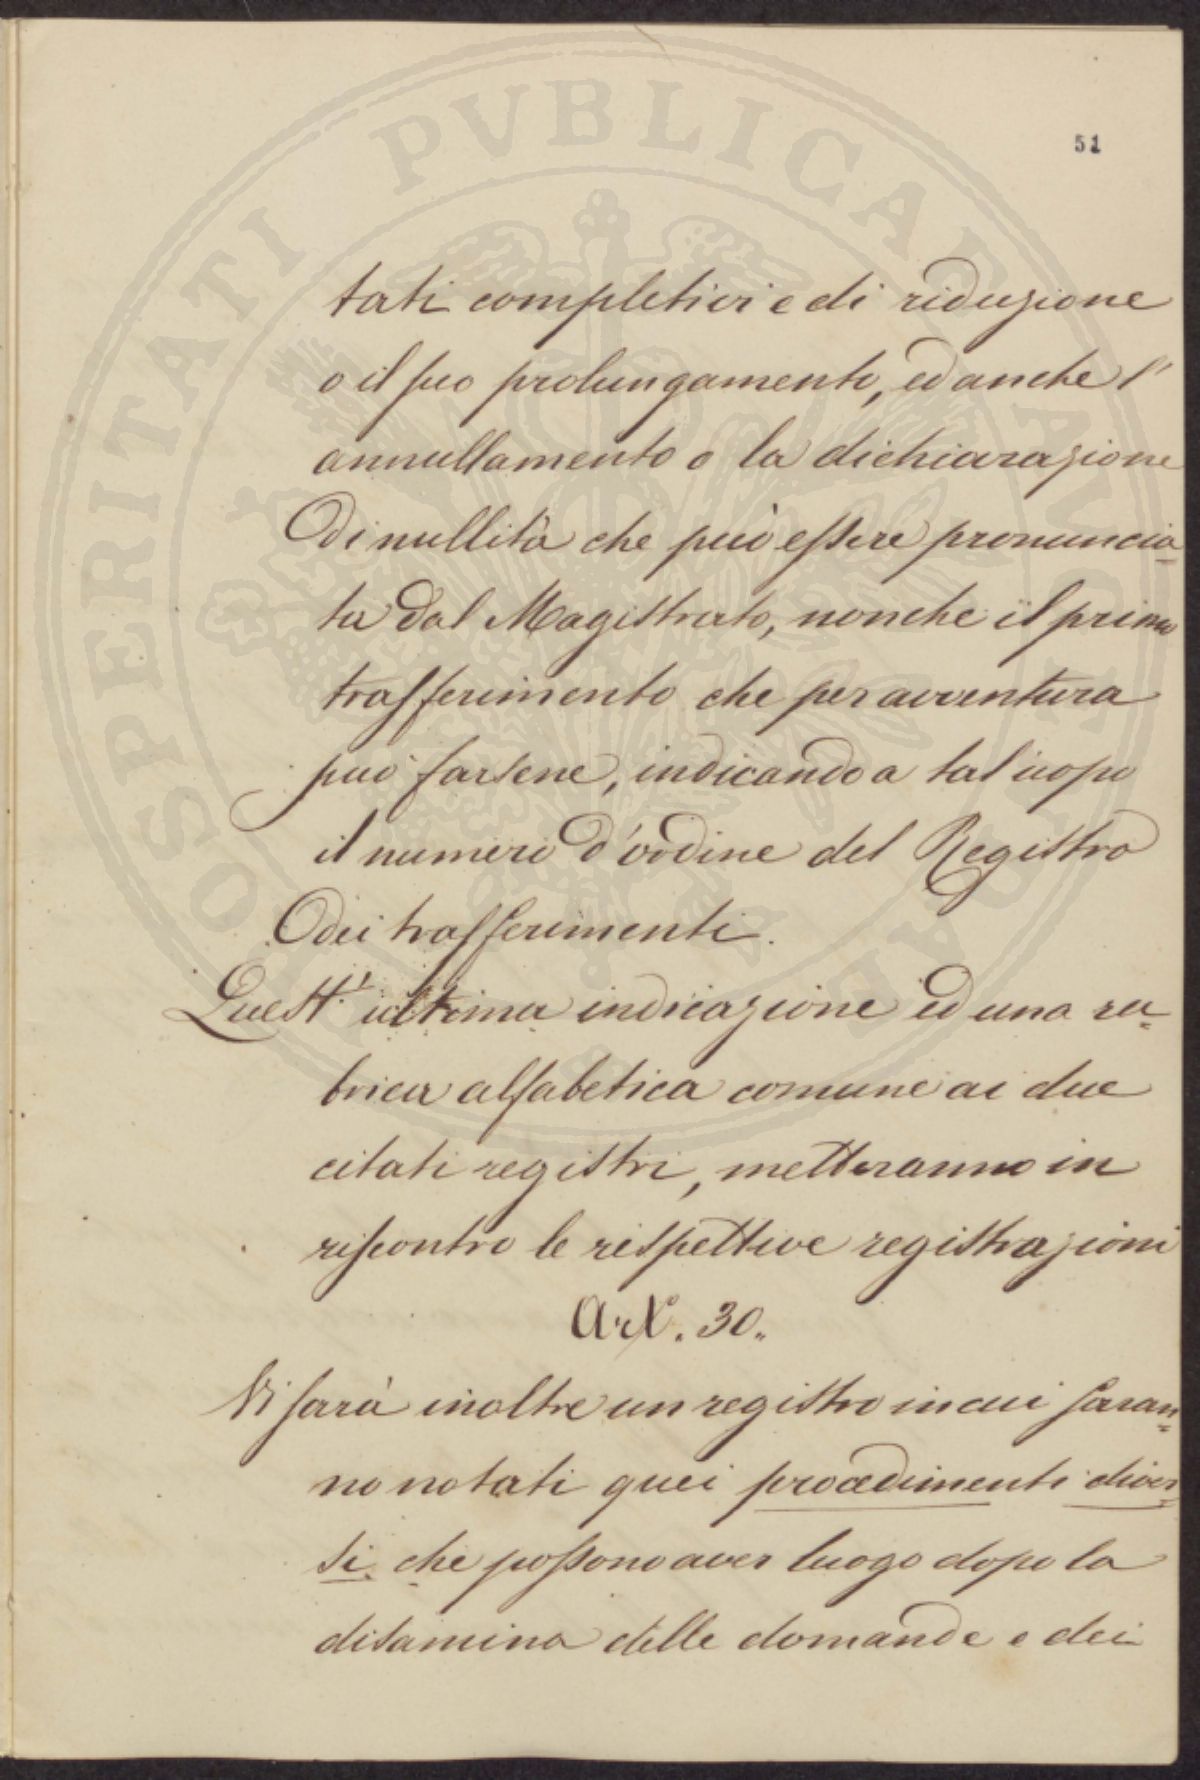 51
tati completivi e di riduzione
o il suo prolungamento, ed anche l'
annullamento o la dichiarazione
di nullità che può essere pronuncia-
ta dal Magistrato, nonche il primo
trasferimento che per avventura
può farsene, indicando a tal uopo
il numero d'ordine del Registro
dei trasferimenti.
Quest'ultima indicazione ed una ru-
brica alfabetica comune ai due
citati registri, metteranno in
riscontro le rispettive registrazioni
Art. 30.
Vi sarà inoltre un registro in cui saran-
no notati quei procedimenti diver-
si che possono aver luogo dopo la
disamina delle domande e dei
PROSPERITATI PVBLICAE AVGENDAE